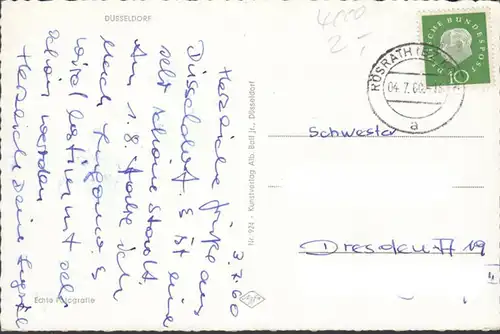 DÜSSELDORF
4000
2,-
DEUTSCHE BUNDESPOST
10
RÖSRATH
04.7.60.-18
a
3.7.60
Herzliche Grüße aus
Düsseldorf. Es ist eine
sehr schöne Stadt.
Am 1.8. fahre ich
nach
wird bestimmt sehr
schön werden
Herzlich Deine
Echte Fotografie
Nr. 974 - Kunstverlag Alb. Boll jr., Düsseldorf
Agfa
Schwester
Dresden A 19